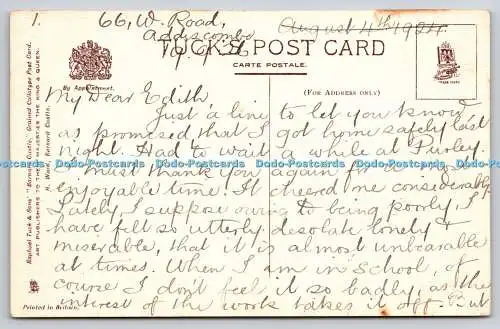 1.
66, W. Road,
Addiscombe
19.9.26
August 4th 1924.
TUCK'S POST CARD
CARTE POSTALE.
By Appointment.
(FOR ADDRESS ONLY)
TRADE MARK
My Dear Edith
Just a line to let you know
as promised that I got home safely last
night. Had to wait a while at Purley.
I must thank you again for
enjoyable time. It cheered me considerably
Lately, I suppose owing to being poorly, I
have felt so utterly desolate lonely &
miserable, that it is almost unbearable
at times. When I am in School, of
course I don't feel it so badly, as the
interest of the work takes it off. But
Dodo-Postcards Dodo-Postcards Dodo-Postcards Dodo-Postcards Dodo-Postcards Dodo-Postcards Dodo-Postcards
Raphael Tuck & Sons' "Barnard Castle." Ground Collotype Post Card.
ART PUBLISHERS TO THEIR MAJESTIES THE KING & QUEEN.
Barnard Castle.
Printed in Britain.